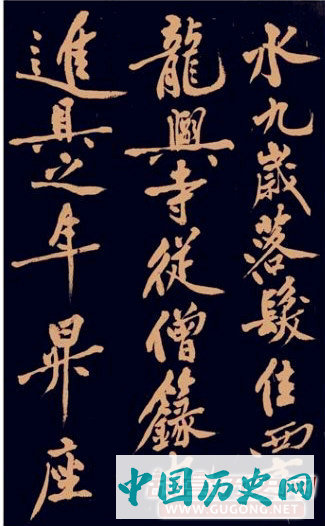 水九歲落髮住西
龍興寺從僧籙
進具之年昇座
中国历史网
WWW.GUGONG.NET